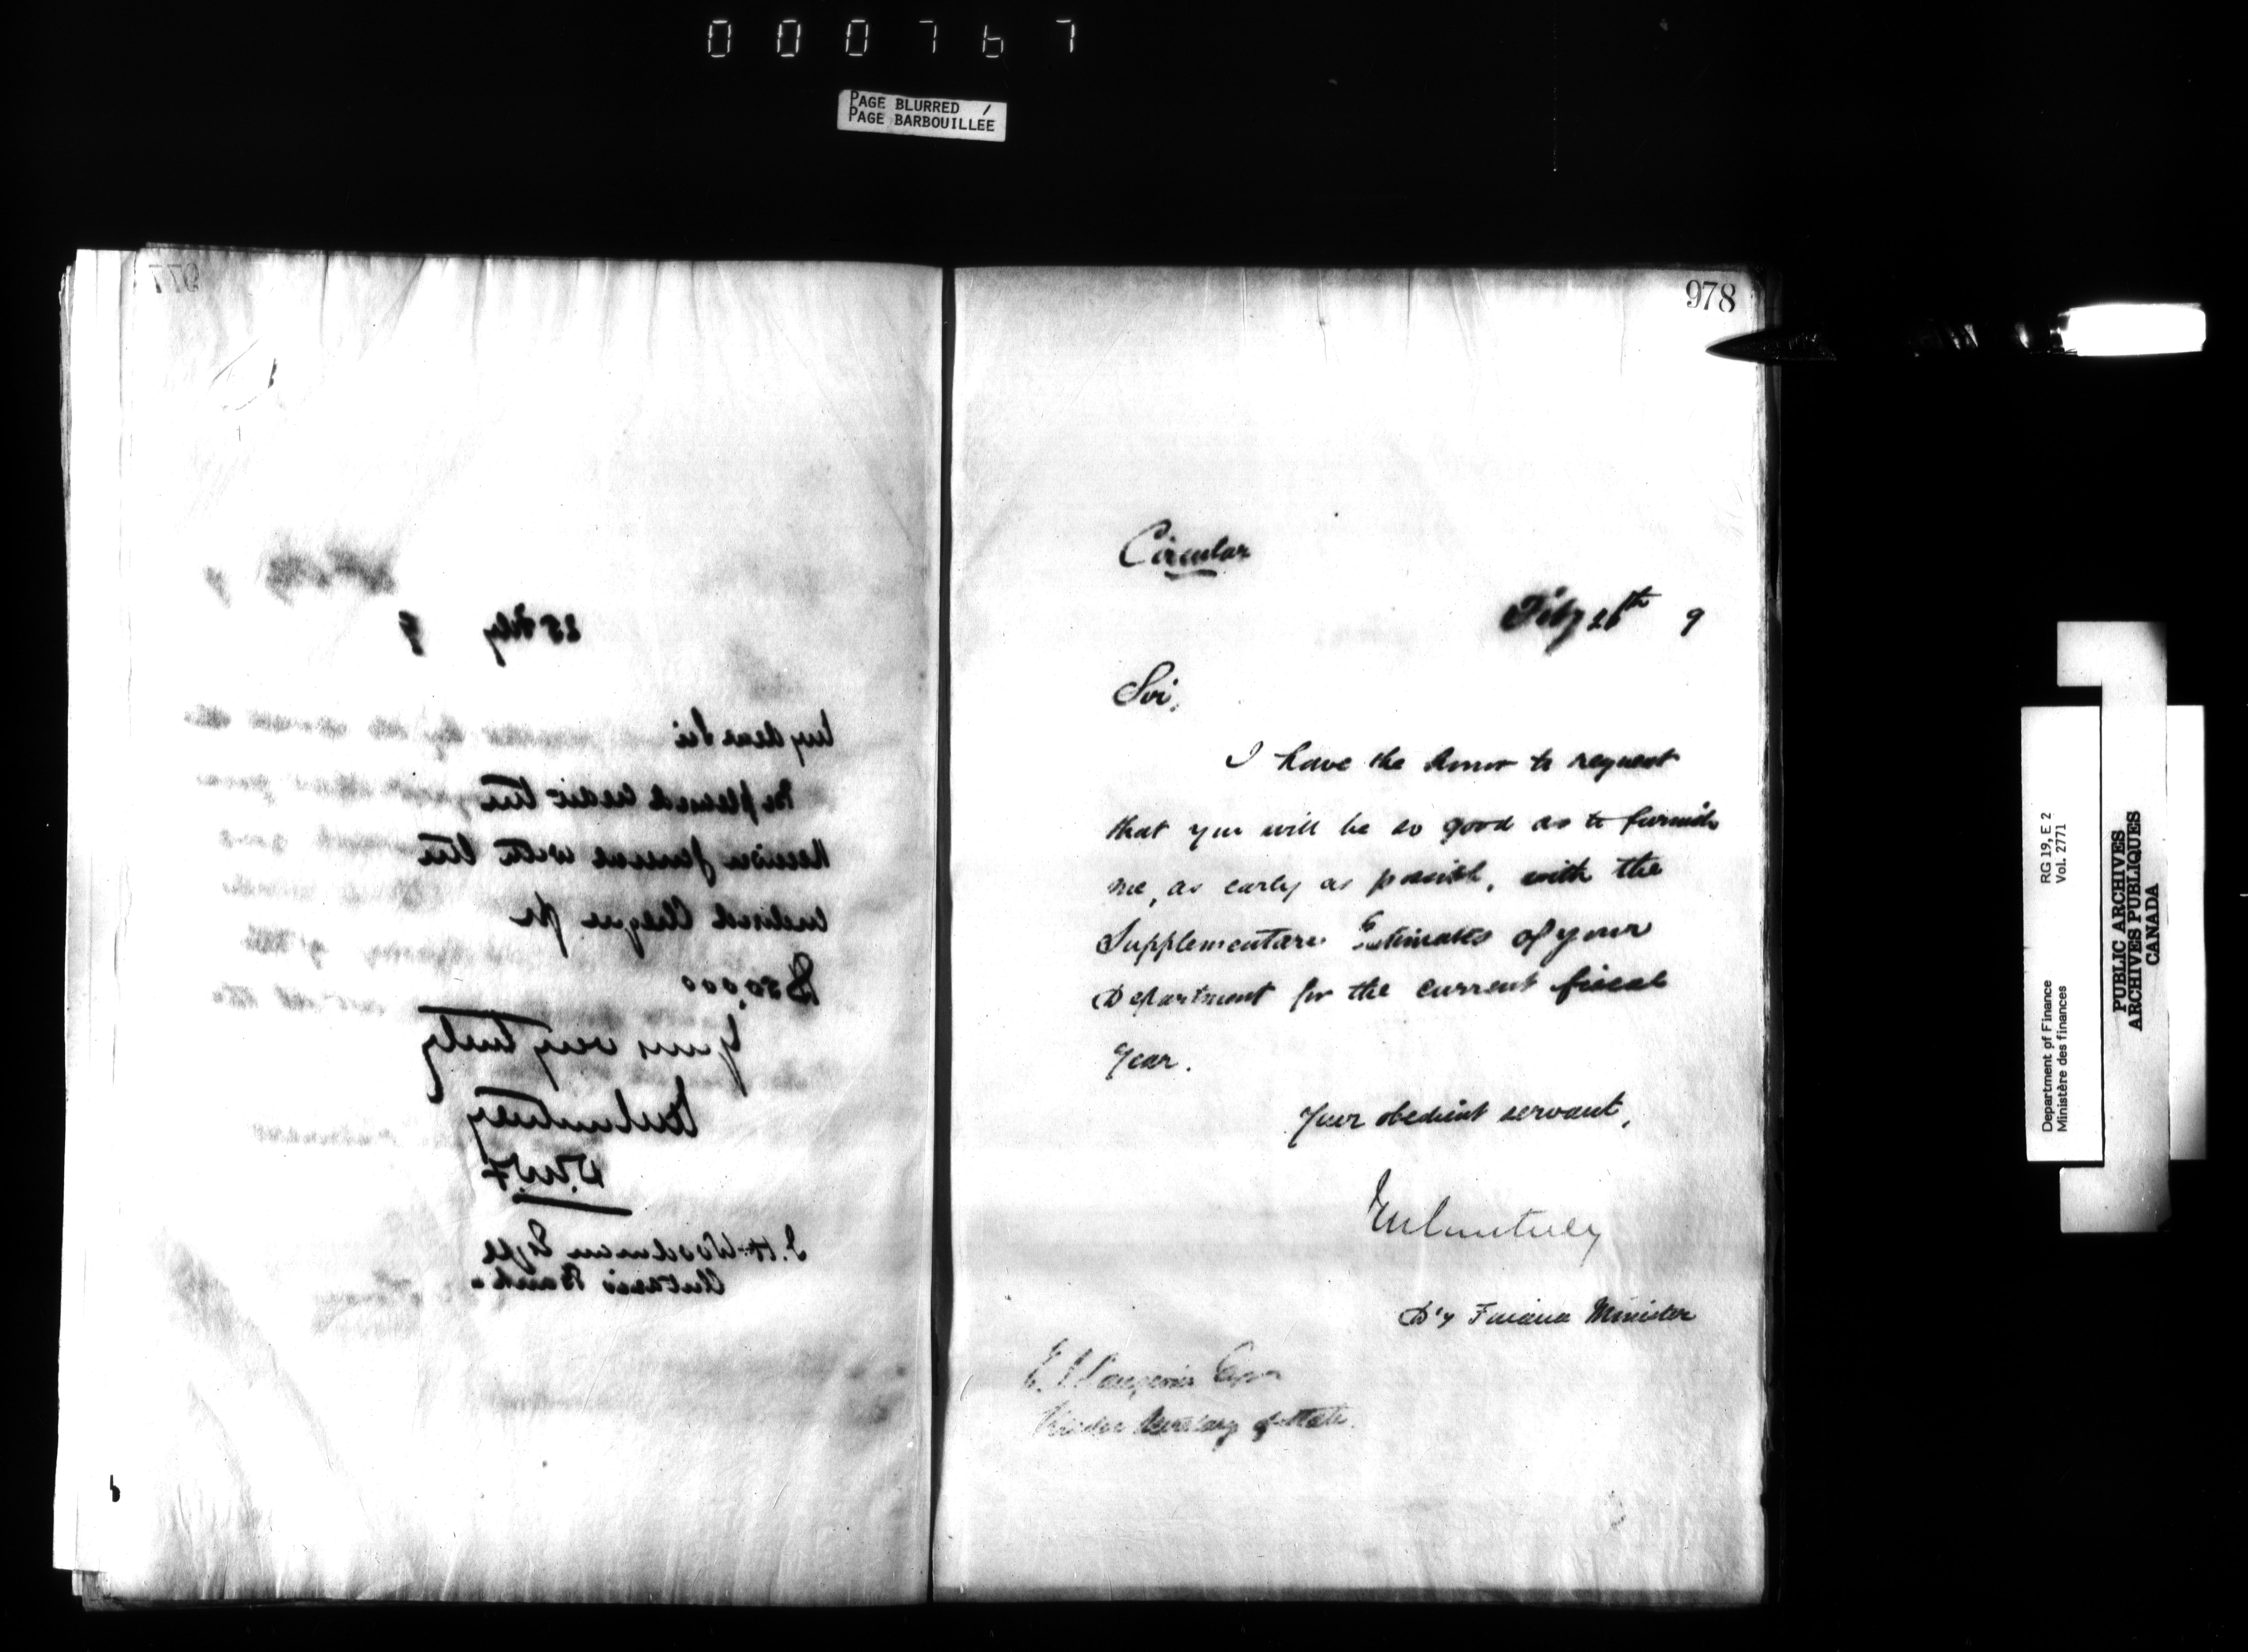 000767
PAGE BLURRED
PAGE BARBOUILLÉE
977
25 Feby 9
My dear Sir
Be pleased credit the
Receiver General with the
enclosed cheque for
$50,000
Yours very truly
JMCourtney
D.M.F
Esqre
Ontario Bank
978
Circular
Feby 26th 9
Sir,
I have the honor to request
that you will be so good as to furnish
me, as early as possible, with the
Supplementary Estimates of your
Department for the current fiscal
year.
Your obedient servant,
JMCourtney
D'y Finance Minister
E. J. Langevin Esqr
Under Secretary of State.
Department of Finance
Ministère des finances
RG 19, E 2
Vol. 2771
PUBLIC ARCHIVES
ARCHIVES PUBLIQUES
CANADA